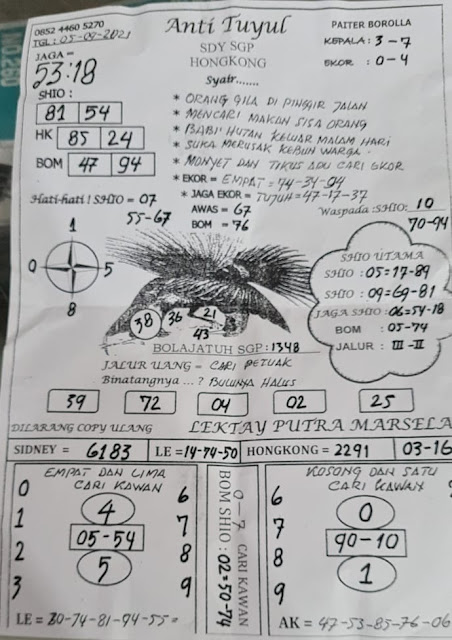 0852 4460 5270
TGL : 05-09-2021
Anti Tuyul
PAITER BOROLLA
SDY SGP
HONGKONG
KEPALA : 3 - 7
EKOR : 0 - 4
JAGA =
53:18
Syair.......
SHIO :
81 54
HK 85 24
BOM 47 94
* ORANG GILA DI PINGGIR JALAN
* MENCARI MAKAN SISA ORANG
* BABI HUTAN KELUAR MALAM HARI
* SUKA MERUSAK KEBUN WARGA
* MONYET DAN TIKUS ADU CARI EKOR
* EKOR = EMPAT = 74-34-94
* JAGA EKOR = TUJUH = 47-17-37
Hati-hati ! SHIO = 07
55-67
AWAS = 67
BOM = 76
Waspada :SHIO: 10
70-94
1
0 5
8
SHIO UTAMA
SHIO : 05=17-89
SHIO : 09=69-81
JAGA SHIO :06=54-18
BOM : 05-74
JALUR : III - II
38 36 21
43
BOLAJATUH SGP : 1348
JALUR UANG = CARI PETUAK
Binatangnya ...? BULUNYA HALUS
39 72 04 02 25
DILARANG COPY ULANG
LEKTAY PUTRA MARSELA
SIDNEY = 6183 LE =14-74-50 HONGKONG = 2291 03-16
EMPAT DAN LIMA
CARI KAWAN
0 6
4
1 7
05-54
2 8
5
3 9
LE = 30-74-81-94-55=
BOM SHIO : 02=50-74
0-7 CARI KAWAN
KOSONG DAN SATU
CARI KAWAN
6
0
7
90-10
8
1
9
AK = 47-53-85-76-06